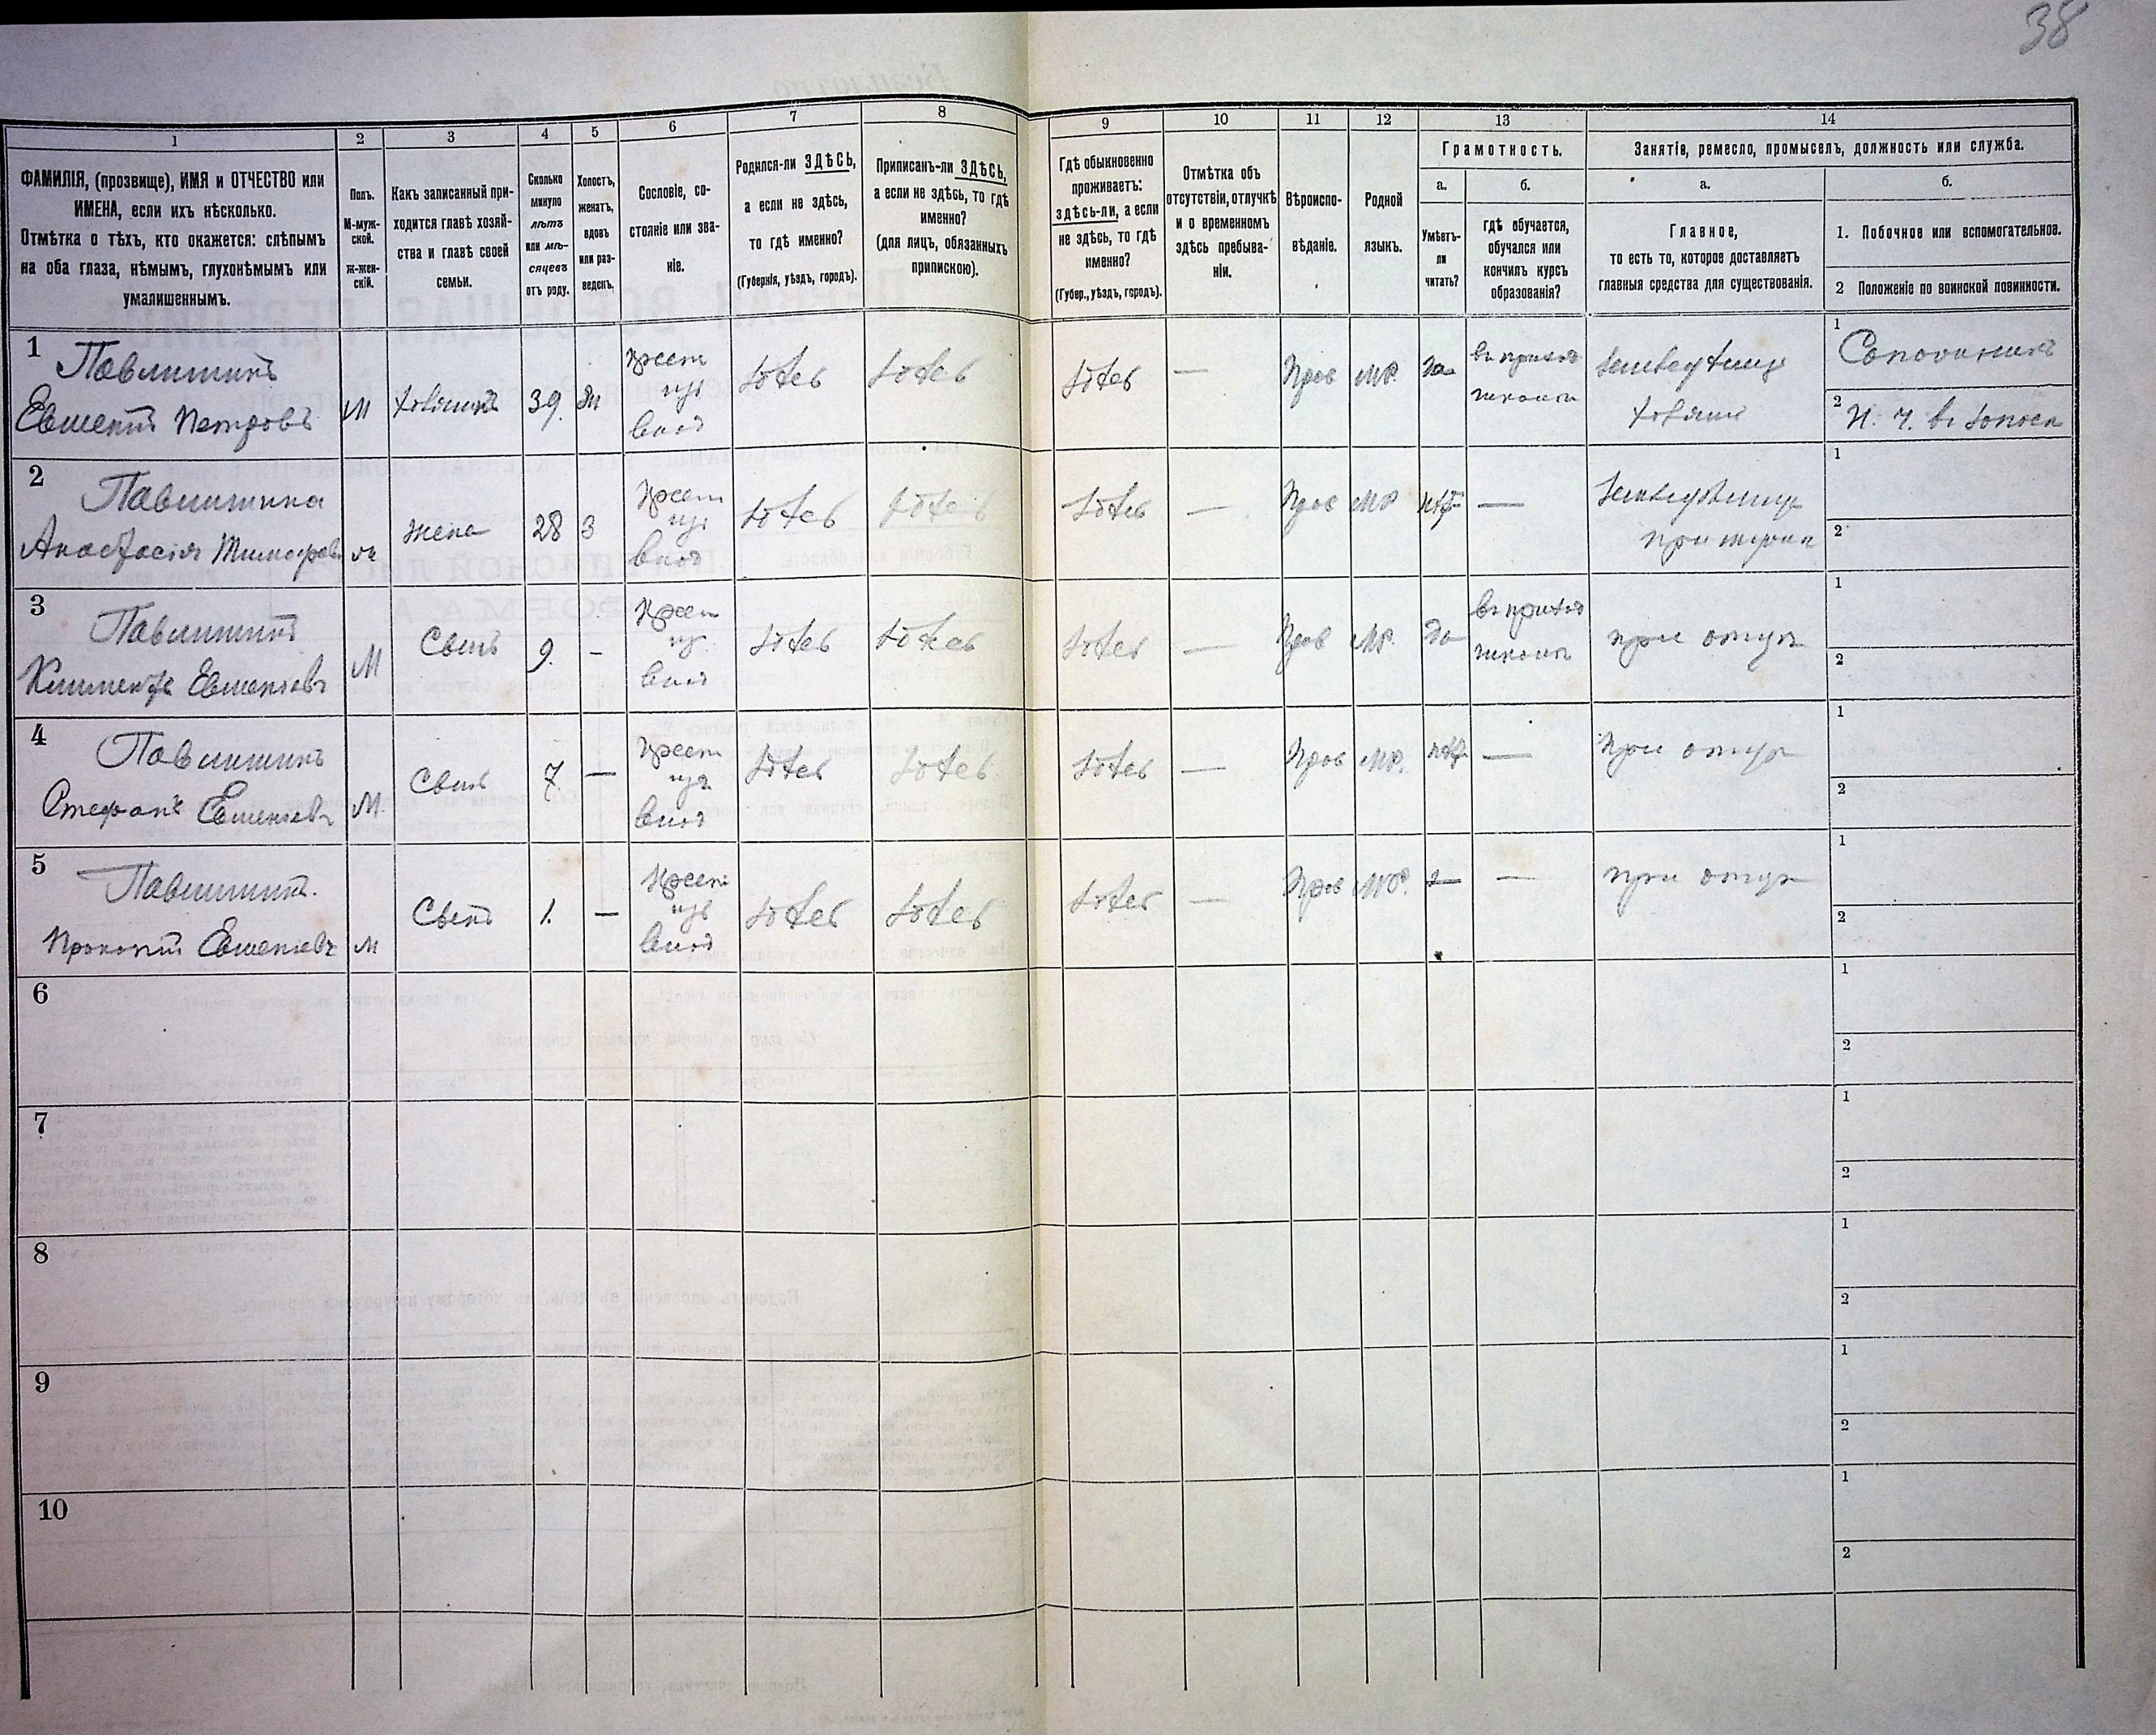 38
1
2
3
4
5
6
7
8
9
10
11
12
13
14
ФАМИЛІЯ, (прозвище), ИМЯ и ОТЧЕСТВО или
ИМЕНА, если ихъ нѣсколько.
Отмѣтка о тѣхъ, кто окажется: слѣпымъ
на оба глаза, нѣмымъ, глухонѣмымъ или
умалишеннымъ.
Полъ.
М-муж-
ской.
Ж-жен-
скій.
Какъ записанный при-
ходится главѣ хозяй-
ства и главѣ своей
семьи.
Сколько
минуло
лѣтъ
или мѣ-
сяцевъ
отъ роду.
Холостъ,
женатъ,
вдовъ
или раз-
веденъ.
Сословіе, со-
стояніе или зва-
ніе.
Родился-ли ЗДѢСЬ,
а если не здѣсь,
то гдѣ именно?
(Губернія, уѣздъ, городъ).
Приписанъ-ли ЗДѢСЬ,
а если не здѣсь, то гдѣ
именно?
(для лицъ, обязанныхъ
припискою).
Гдѣ обыкновенно
проживаетъ:
здѣсь-ли, а если
не здѣсь, то гдѣ
именно?
(Губер., уѣздъ, городъ).
Отмѣтка объ
отсутствіи, отлучкѣ
и о временномъ
здѣсь пребыва-
ніи.
Вѣроиспо-
вѣданіе.
Родной
языкъ.
Грамотность.
а.
Умѣетъ-
ли
читать?
б.
гдѣ обучается,
обучался или
кончилъ курсъ
образованія?
Занятіе, ремесло, промыселъ, должность или служба.
а.
Главное,
то есть то, которое доставляетъ
главныя средства для существованія.
б.
1. Побочное или вспомогательное.
2 Положеніе по воинской повинности.
1
Павлишинъ
Евменій Петровъ
М
хозяинъ
39.
Ж
Крест
изъ
влад
здѣсь
здѣсь
здѣсь
—
Прав
МР.
да
въ приход
школѣ
хозяинъ
1
Сапожникъ
2
2
Павлишина
Анастасія Тимофеев
ж
жена
28
З
Крест
изъ
влад
здѣсь
здѣсь
здѣсь
—
Прав
МР
нѣт
—
при мужѣ
1
2
3
Павлишинъ
Климентъ Евменіевъ
М
Сынъ
9.
-
Крест
изъ
влад
здѣсь
здѣсь
здѣсь
—
Прав
МР.
да
въ приход
школѣ
при отцѣ
1
2
4
Павлишинъ
Стефанъ Евменіевъ
М.
Сынъ
7.
—
Крест
изъ
влад
здѣсь
здѣсь
здѣсь
—
Прав
МР.
нѣт
—
при отцѣ
1
2
5
Павлишинъ.
Прокопій Евменіевъ
М
Сынъ
1.
—
Крест
изъ
влад
здѣсь
здѣсь
здѣсь
—
Прав
МР.
—
при отцѣ
1
2
6
1
2
7
1
2
8
1
2
9
1
2
10
1
2